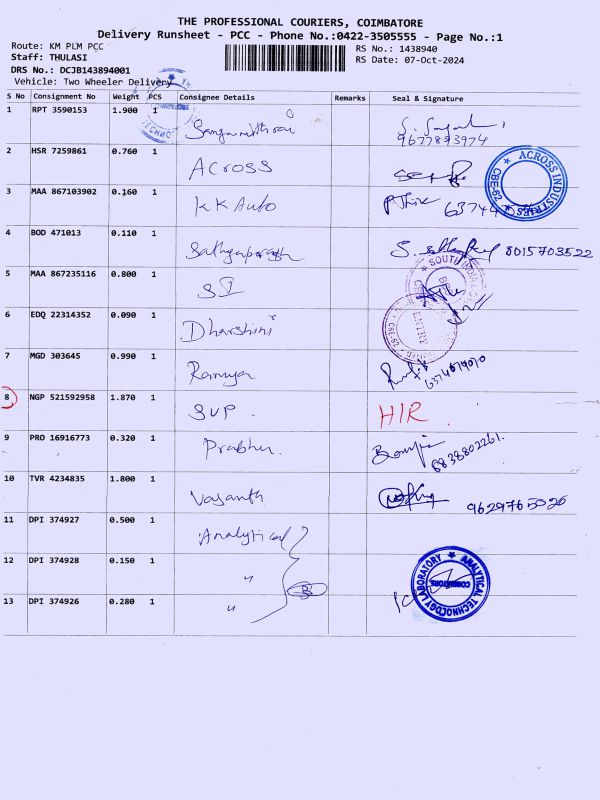 THE PROFESSIONAL COURIERS, COIMBATORE
Delivery Runsheet - PCC - Phone No.:0422-3505555 - Page No.:1
Route: KM PLM PCC
RS No.: 1438940
Staff: THULASI
RS Date: 07-Oct-2024
DRS No.: DCJB143894001
Vehicle: Two Wheeler Delivery
S No Consignment No Weight PCS Consignee Details Remarks Seal & Signature
1 RPT 3590153 1.900 1
9677893974
2 HSR 7259861 0.760 1 Across
ACROSS INDUSTRIES
CBE-62
3 MAA 867103902 0.160 1 KK Auto
63744
4 BOD 471013 0.110 1 8015703522
5 MAA 867235116 0.800 1 SI
SOUTH
6 EDQ 22314352 0.090 1 Dharshini
ENTRY
7 MGD 303645 0.990 1 Ramya
8 NGP 521592958 1.870 1 SVP. HIR
9 PRO 16916773 0.320 1 Prabhu
8838802261.
10 TVR 4234835 1.800 1 Vasanth
9629765026
11 DPI 374927 0.500 1 Analytical
12 DPI 374928 0.150 1 "
ANALYTICAL TECHNOLOGY LABORATORY
COIMBATORE
13 DPI 374926 0.280 1 "